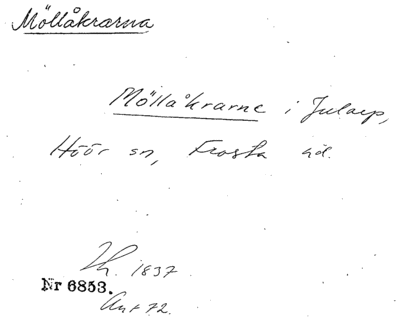 Möllåkrarna
Möllåkrarne i Jularp,
Höör sn, Frosta hd.
Lh. 1837
Nr 6853.
Ant 72.